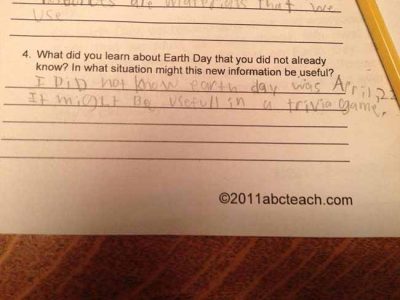 Resources are materials that we
use
4. What did you learn about Earth Day that you did not already
know? In what situation might this new information be useful?
I DiD not know earth day was April, 22
It might Be usefull in a trivia game.
©2011abcteach.com